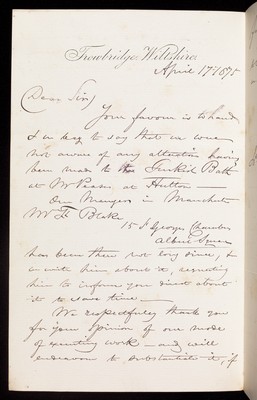 Trowbridge, Wiltshire
April 17 1875
Dear Sir
Your favour is to hand
& we beg to say that we were
not aware of any alteration having
been made to the Turkish Bath
at Mr Pease, at Hutton —
Our Manager in Manchester
Mr Th Blake
15 St Georges Chambers
Albert Square
has been there not long since, &
with him about it, requesting
him to inform you direct about
it to save time —
We respectfully thank you
for your opinion of our mode
of executing work — and will
endeavour to substantiate it, if